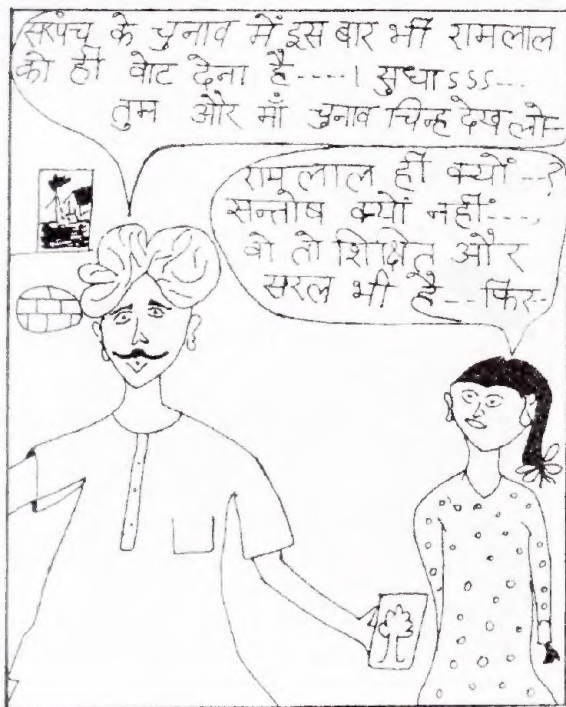 सरपंच के चुनाव में इस बार भी रामलाल
को ही वोट देना है----। सुधाsss---
तुम और माँ चुनाव चिन्ह देख लो-
रामलाल ही क्यों--?
सन्तोष क्यों नहीं---,
वो तो शिक्षित और
सरल भी है--- फिर-